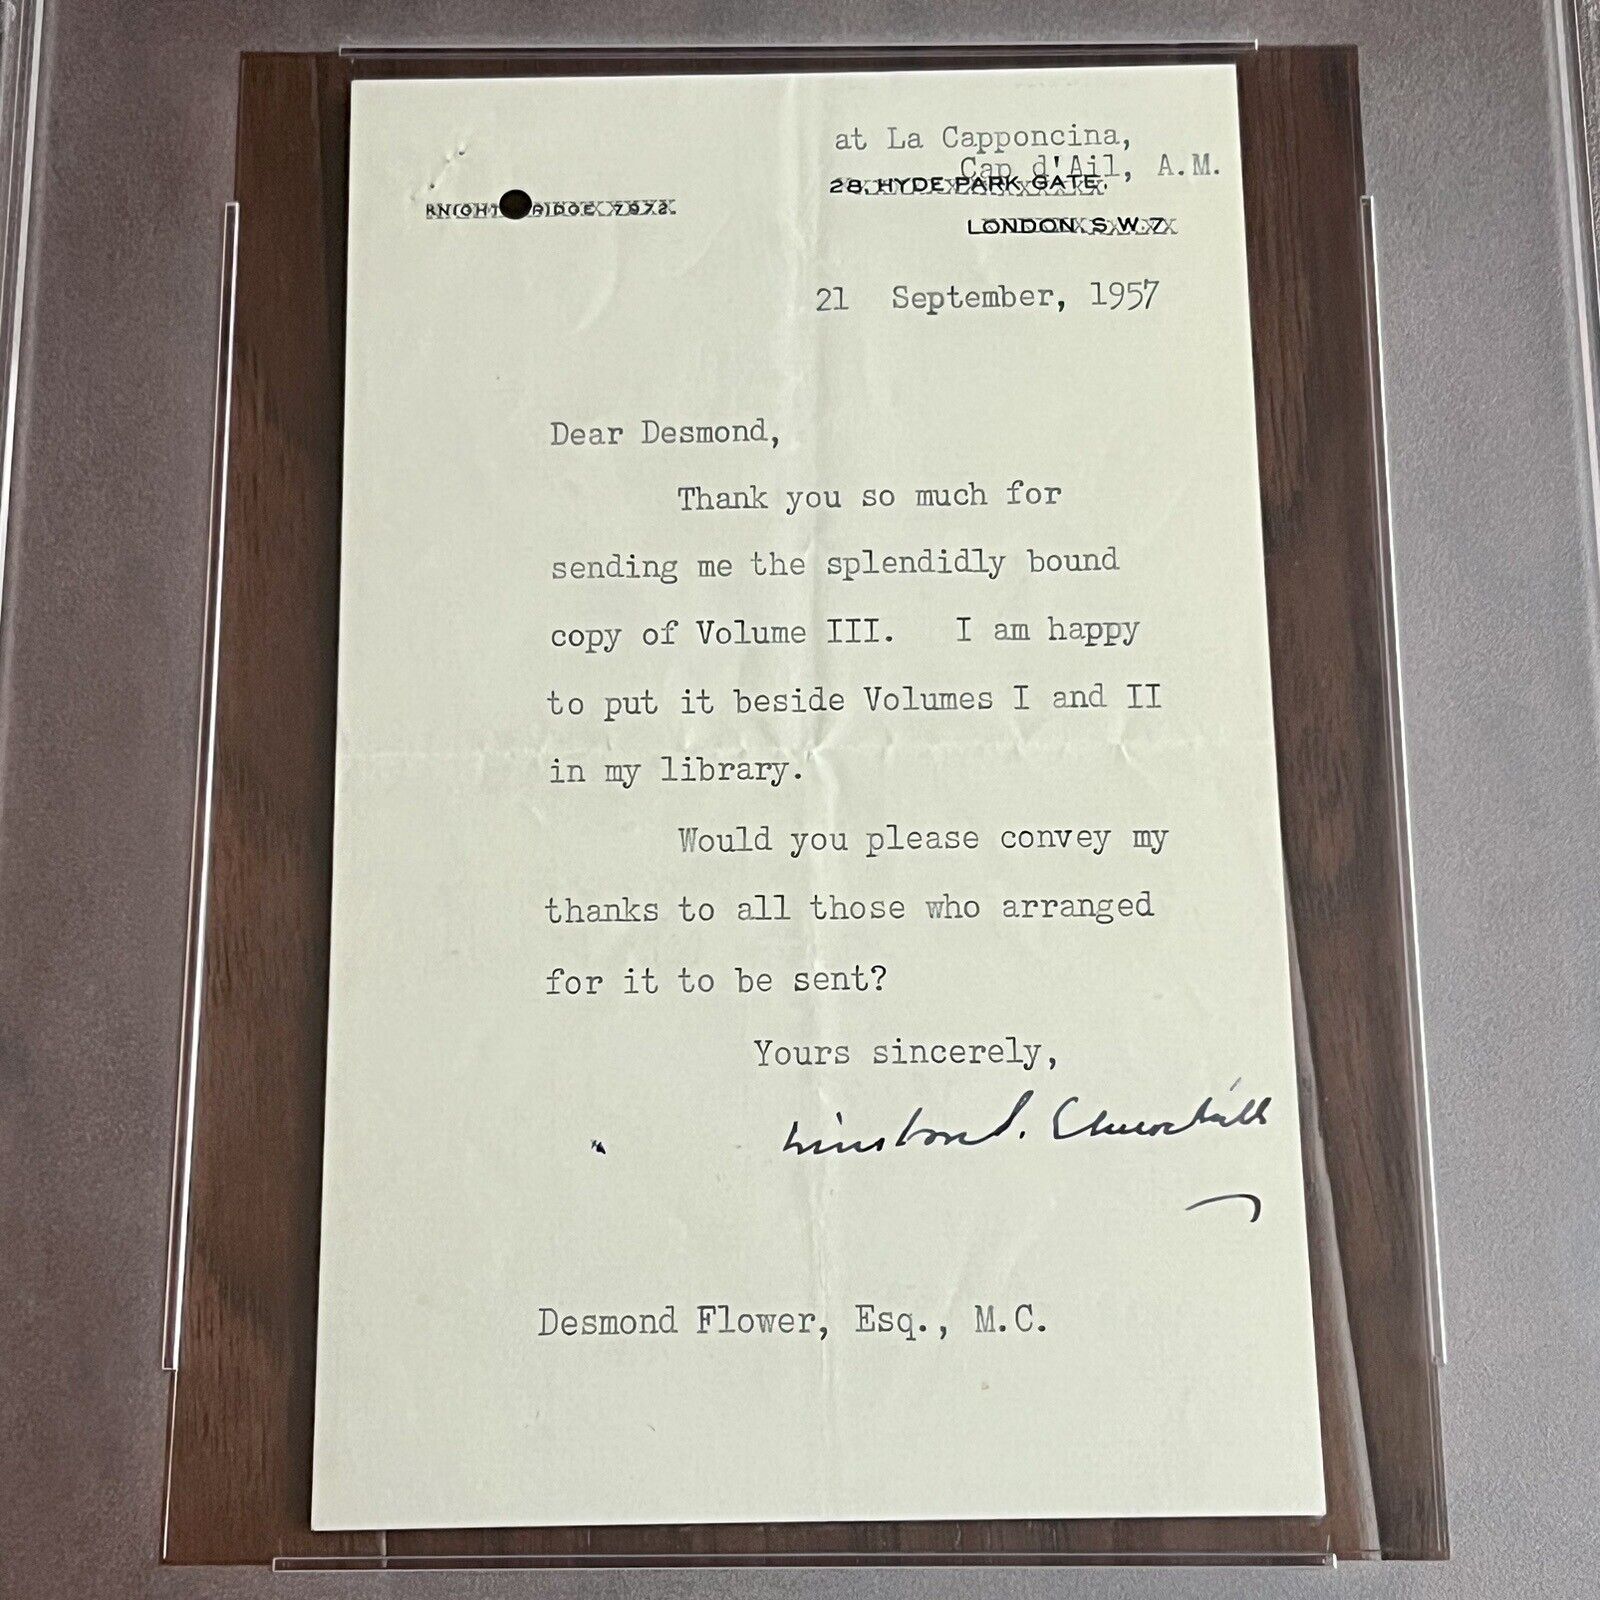 at La Capponcina,
Cap d'Ail, A.M.
28, HYDE PARK GATE,
LONDON S.W.7.
21 September, 1957
Dear Desmond,
Thank you so much for
sending me the splendidly bound
copy of Volume III. I am happy
to put it beside Volumes I and II
in my library.
Would you please convey my
thanks to all those who arranged
for it to be sent?
Yours sincerely,
Winston S. Churchill
Desmond Flower, Esq., M.C.